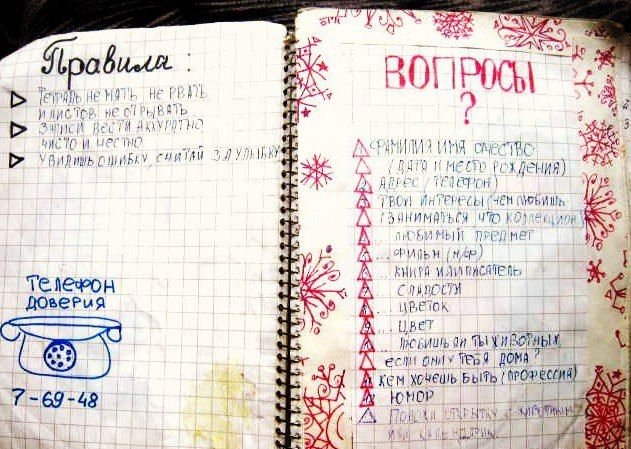 Правила:
Тетрадь не мять, не рвать
и листов не отрывать
Записи вести аккуратно
чисто и честно
Увидишь ошибку, считай за улыбку
Телефон
доверия
7-69-48
Вопросы
?
Фамилия имя очество
(дата и место рождения)
Адрес (телефон)
Твои интересы (чем любишь
заниматься что коллекцион)
... любимый предмет
... фильм (м/ф)
... книга или писатель
сладости
... цветок
... цвет
... любишь ли ты животных,
если они у тебя дома?
Кем хочешь быть (профессия)
Юмор
открытку с
или календарик.